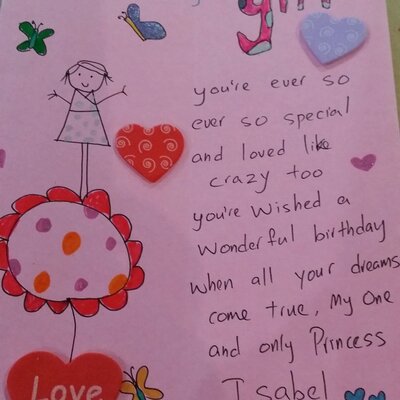 girl
you're ever so
ever so special
and loved like
crazy too
you're wished a
wonderful birthday
when all your dreams
come true, My One
and only Princess
Isabel
Love